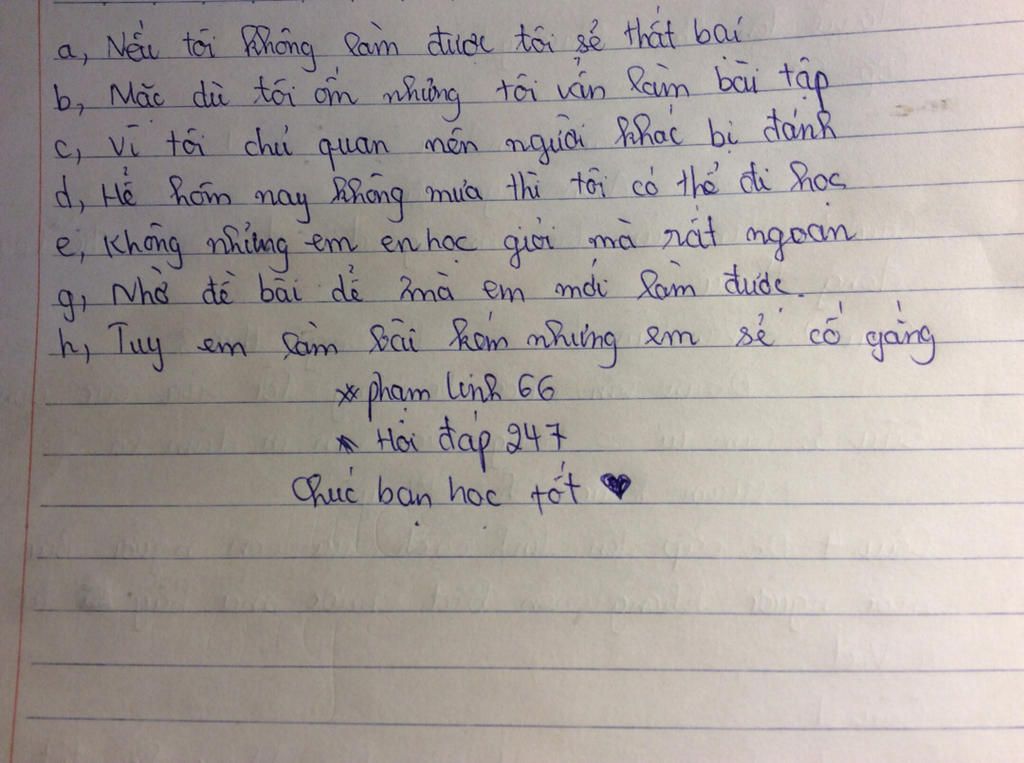 a, Nếu tôi không làm được tôi sẽ thất bại
b, Mặc dù tôi ốm nhưng tôi vẫn làm bài tập
c, Vì tôi chủ quan nên người khác bị đánh
d, Hễ hôm nay không mưa thì tôi có thể đi học
e, Không những em en học giỏi mà rất ngoan
g, Nhờ đề bài dễ mà em mới làm được.
h, Tuy em làm bài kém nhưng em sẽ cố gắng
* phạm linh 66
* Hỏi đáp 247
Chúc bạn học tốt ♥